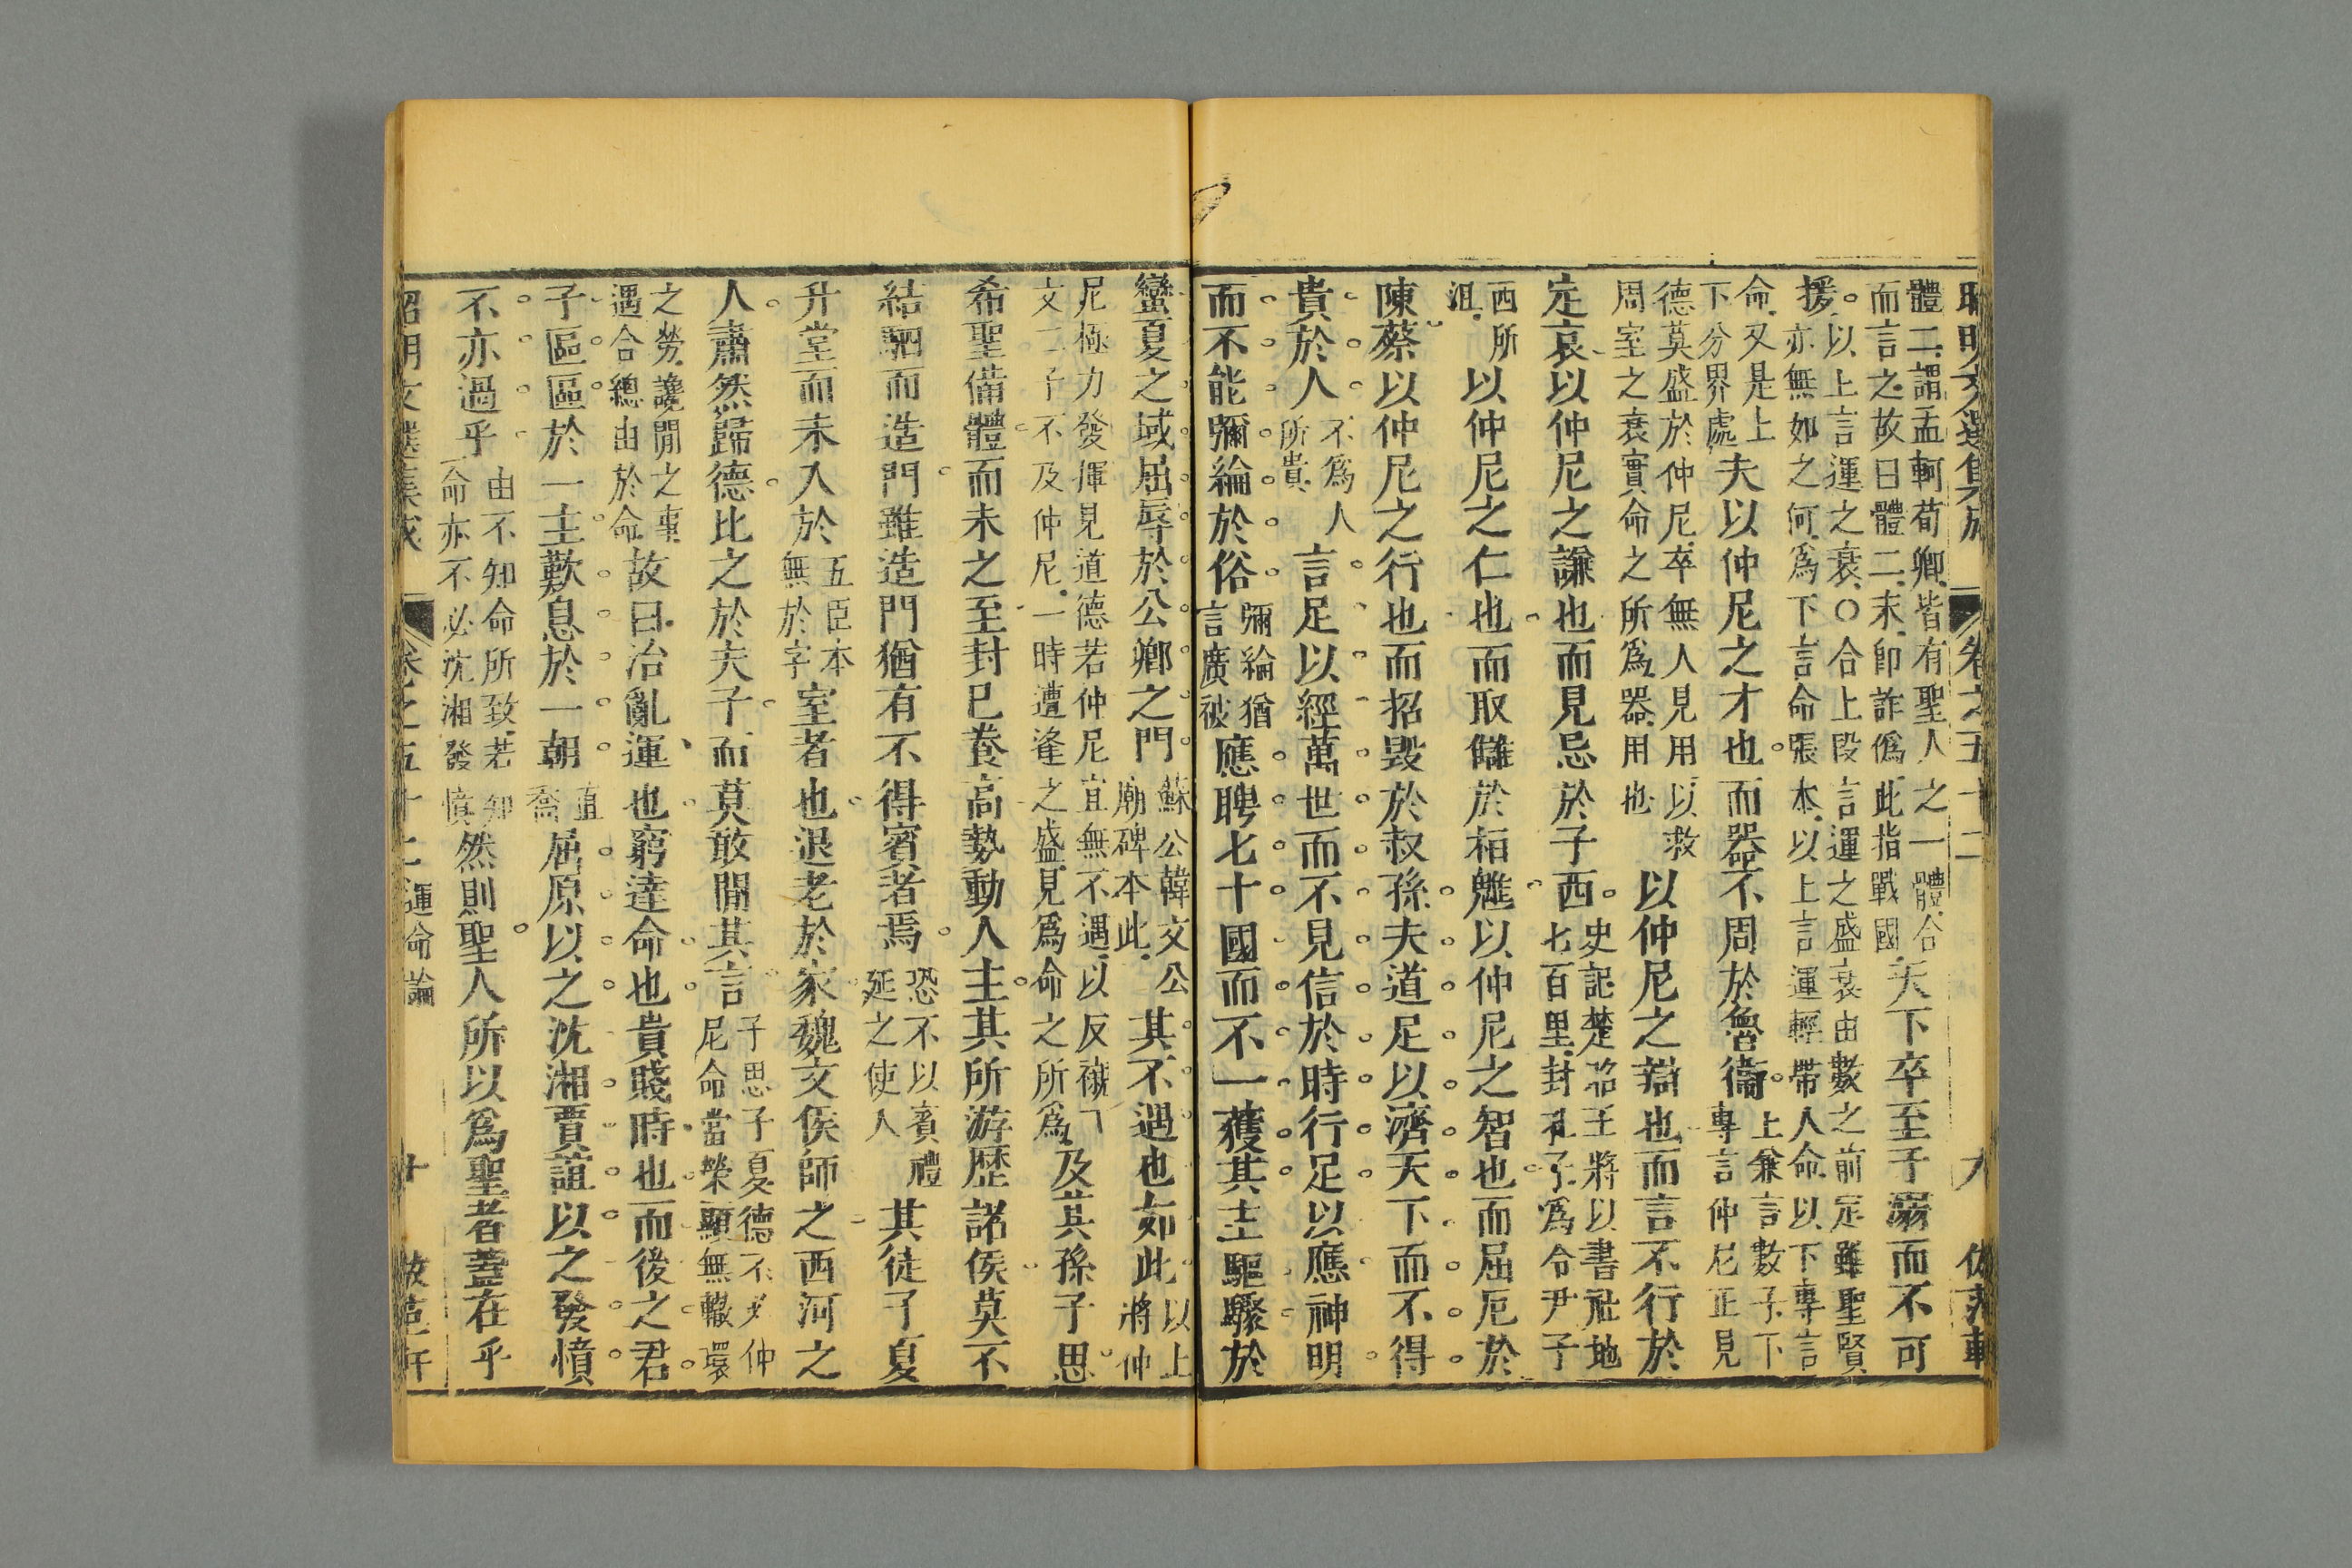 昭明文選集成 卷之五十二 九 倣范軒
體二、謂孟軻荀卿、皆有聖人之一體、合
而言之、故曰體二、末、卽詐僞、此指戰國、天下卒至于溺而不可
援、以上言運之衰、〇合上段言運之盛衰、由數之前定、雖聖賢
亦無如之何、爲下言命張本、以上言運輕帶人命、以下專言
命、又是上
下分界處、夫以仲尼之才也而器不周於魯衞上兼言數子、下
專言仲尼正見
德莫盛於仲尼、卒無人見用以救
周室之衰、實命之所爲、器、用也以仲尼之辯也而言不行於
定哀以仲尼之謙也而見忌於子西史記楚昭王將以書社地
七百里封孔子、爲令尹子
西所
沮以仲尼之仁也而取讎於桓魋以仲尼之智也而屈厄於
陳蔡以仲尼之行也而招毀於叔孫夫道足以濟天下而不得
貴於人不爲人
所貴言足以經萬世而不見信於時行足以應神明
而不能彌綸於俗彌綸猶
言廣被應聘七十國而不一獲其主驅驟於
蠻夏之域屈辱於公卿之門蘇公韓文公
廟碑本此、其不遇也如此以上
將仲
尼極力發揮、見道德若仲尼、宜無不遇、以反襯
文二子不及仲尼、一時遭逢之盛、見爲命之所爲、及其孫子思
希聖備體而未之至封已養高勢動人主其所游歷諸侯莫不
結駟而造門雖造門猶有不得賓者焉恐不以賓禮
延之使人其徒子夏
升堂而未入於五臣本
無於字室者也退老於家魏文侯師之西河之
人肅然歸德比之於夫子而莫敢閒其言子思子夏德不及仲
尼命當榮顯無轍環
之勞、讒閒之事、
遇合總由於命、故曰治亂運也窮達命也貴賤時也而後之君
子區區於一主歎息於一朝屈原以之沈湘賈誼以之發憤
不亦過乎由不知命所致、若知
命亦不必沈湘發憤然則聖人所以爲聖者蓋在乎
昭明文選集成 卷之五十二 運命論 十 倣范軒